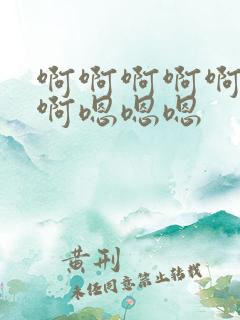 啊啊啊啊啊
啊嗯嗯嗯
黄刑
未经同意禁止转载